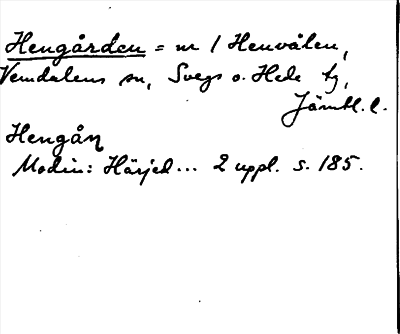 Hengården = nr 1 Henvålen,
Vemdalens sn, Svegs o. Hede tg,
Jämtl. l.
Hengån
Modin: Härjed... 2 uppl. s. 185.